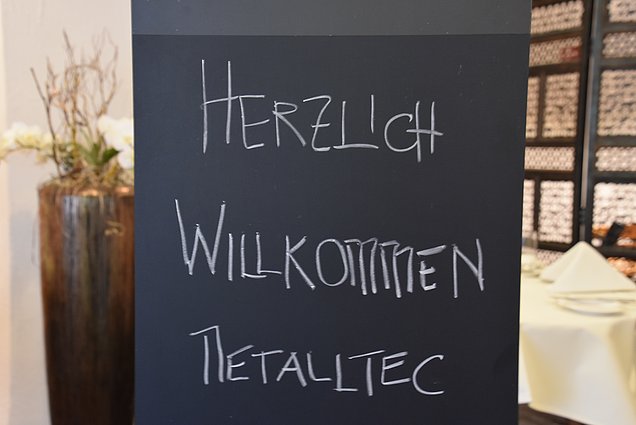 HERZLICH
WILLKOMMEN
METALLTEC